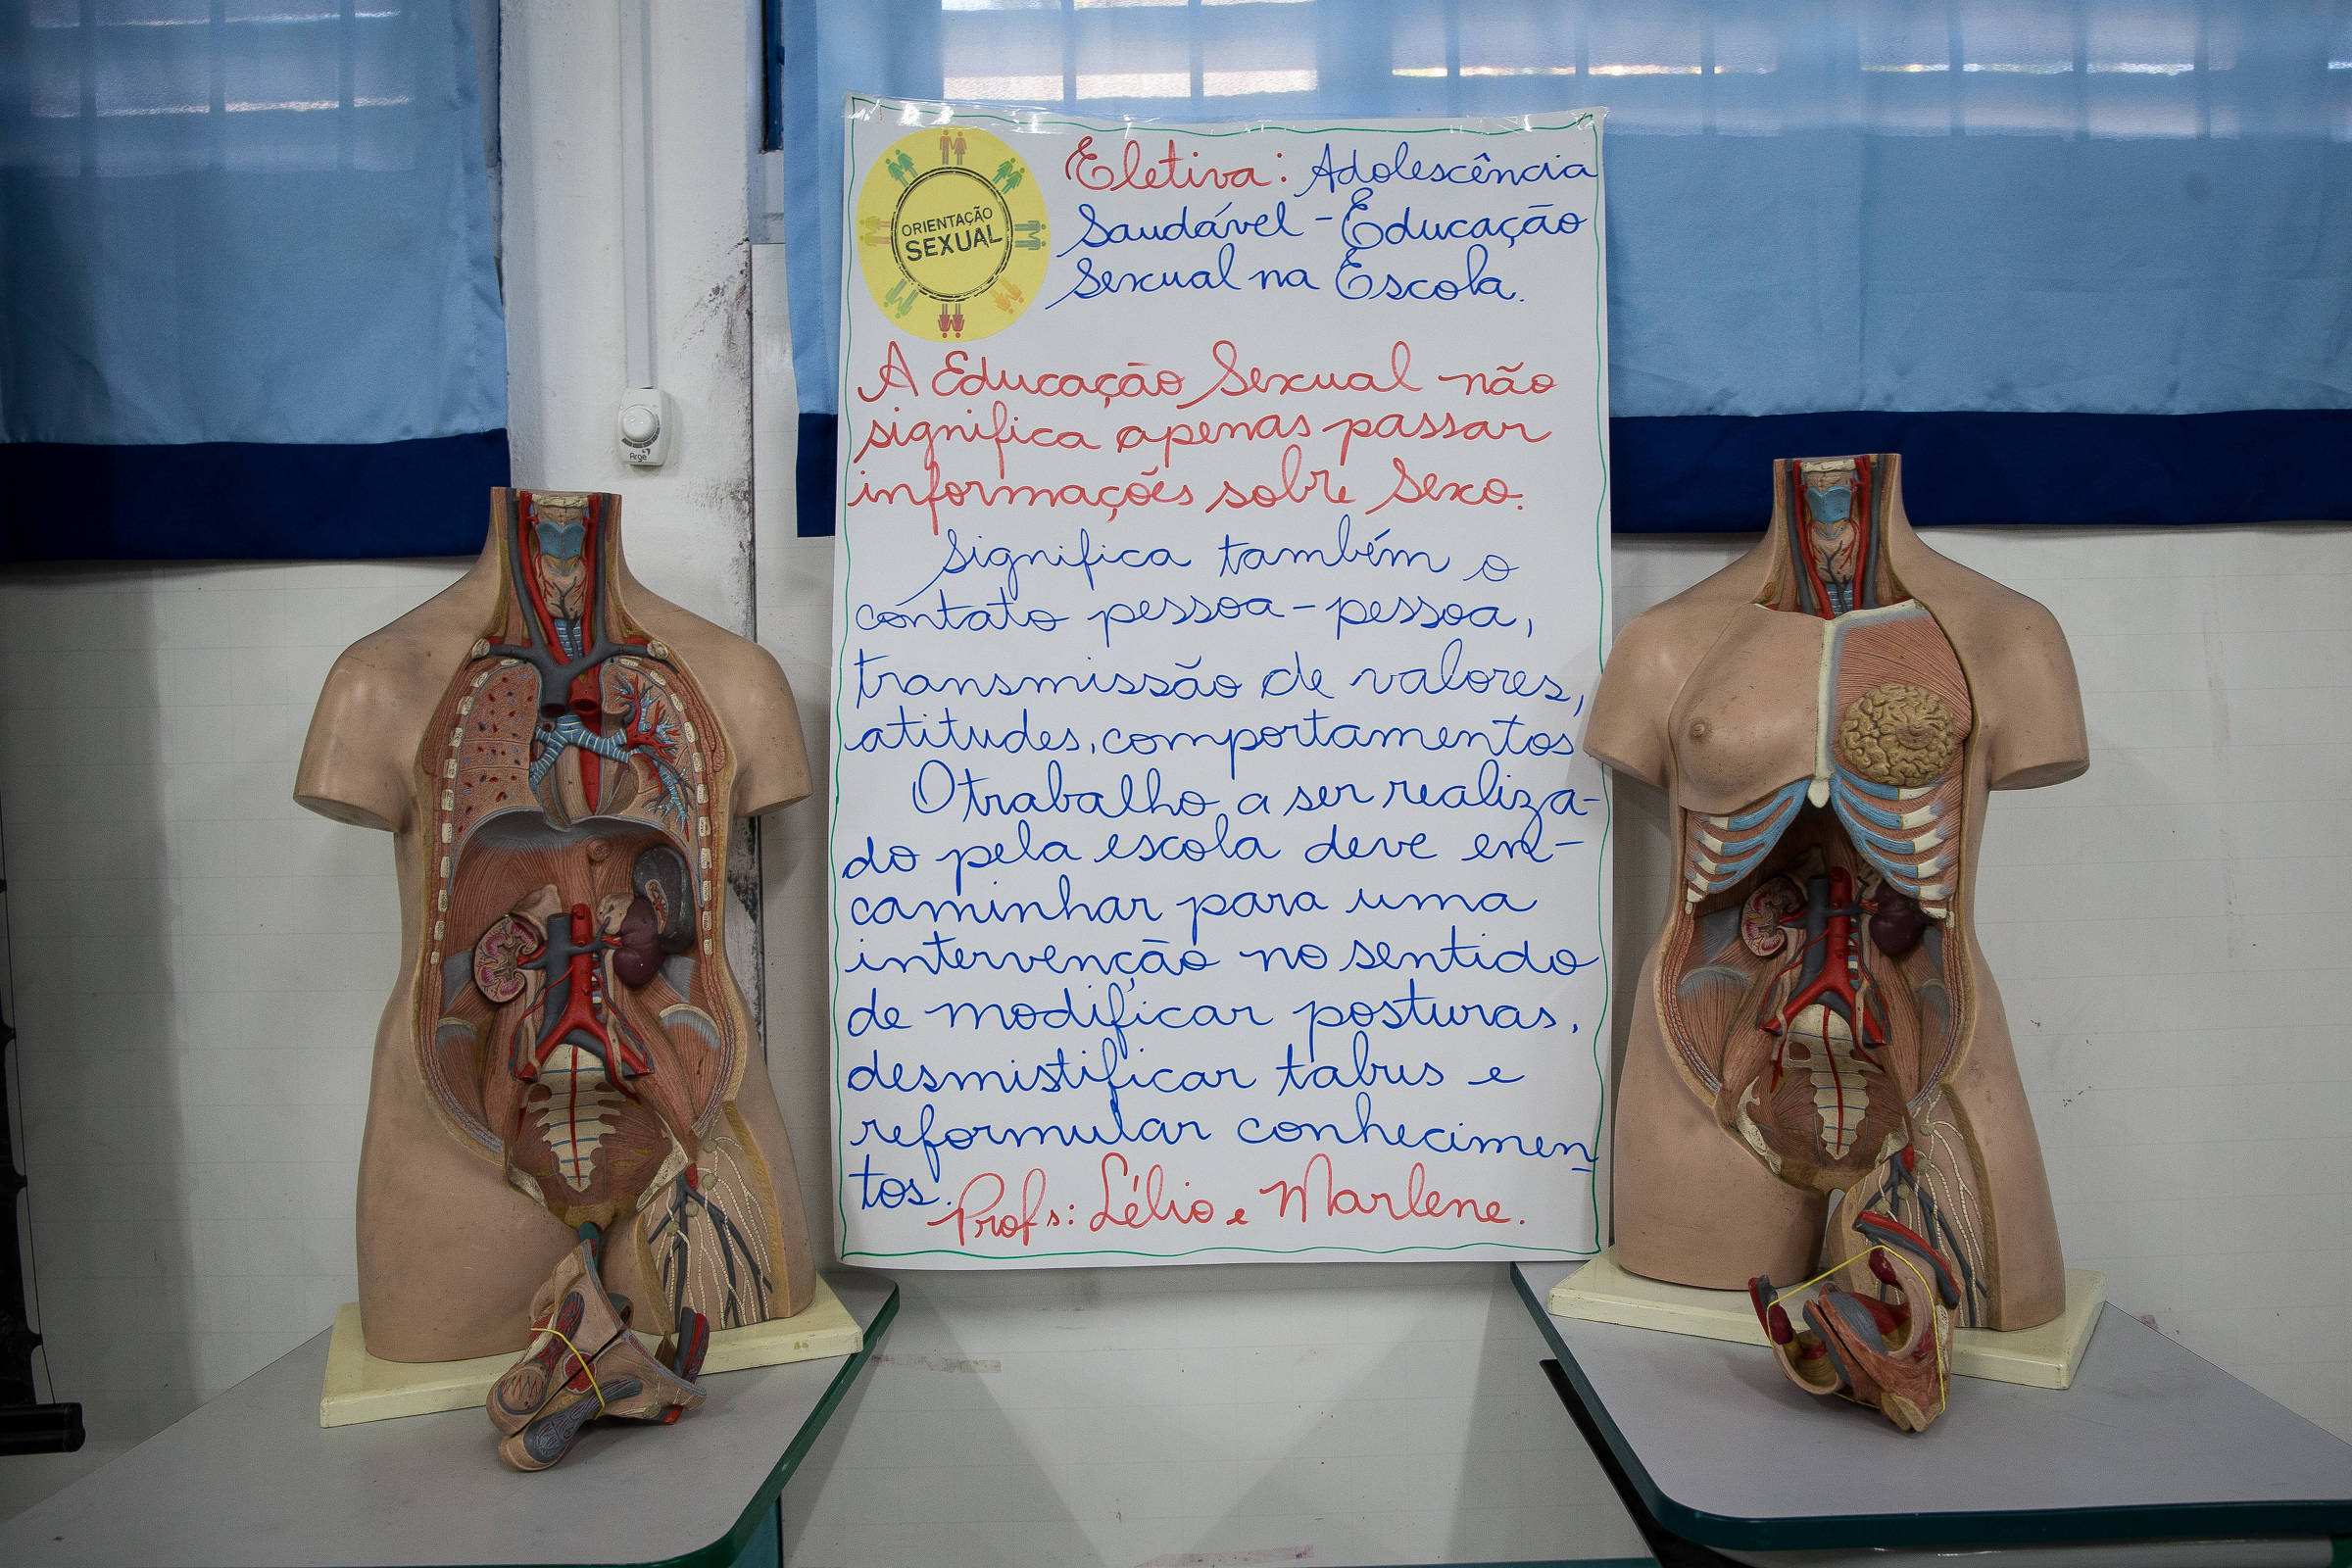 ORIENTAÇÃO
SEXUAL
Eletiva: Adolescência
Saudável - Educação
Sexual na Escola.
A Educação Sexual não
significa apenas passar
informações sobre Sexo.
Significa também o
contato pessoa-pessoa,
transmissão de valores,
atitudes, comportamentos
O trabalho a ser realiza-
do pela escola deve en-
caminhar para uma
intervenção no sentido
de modificar posturas,
desmistificar tabus e
reformular conhecimen-
tos.
Profs: Lélio e Marlene.
Arge